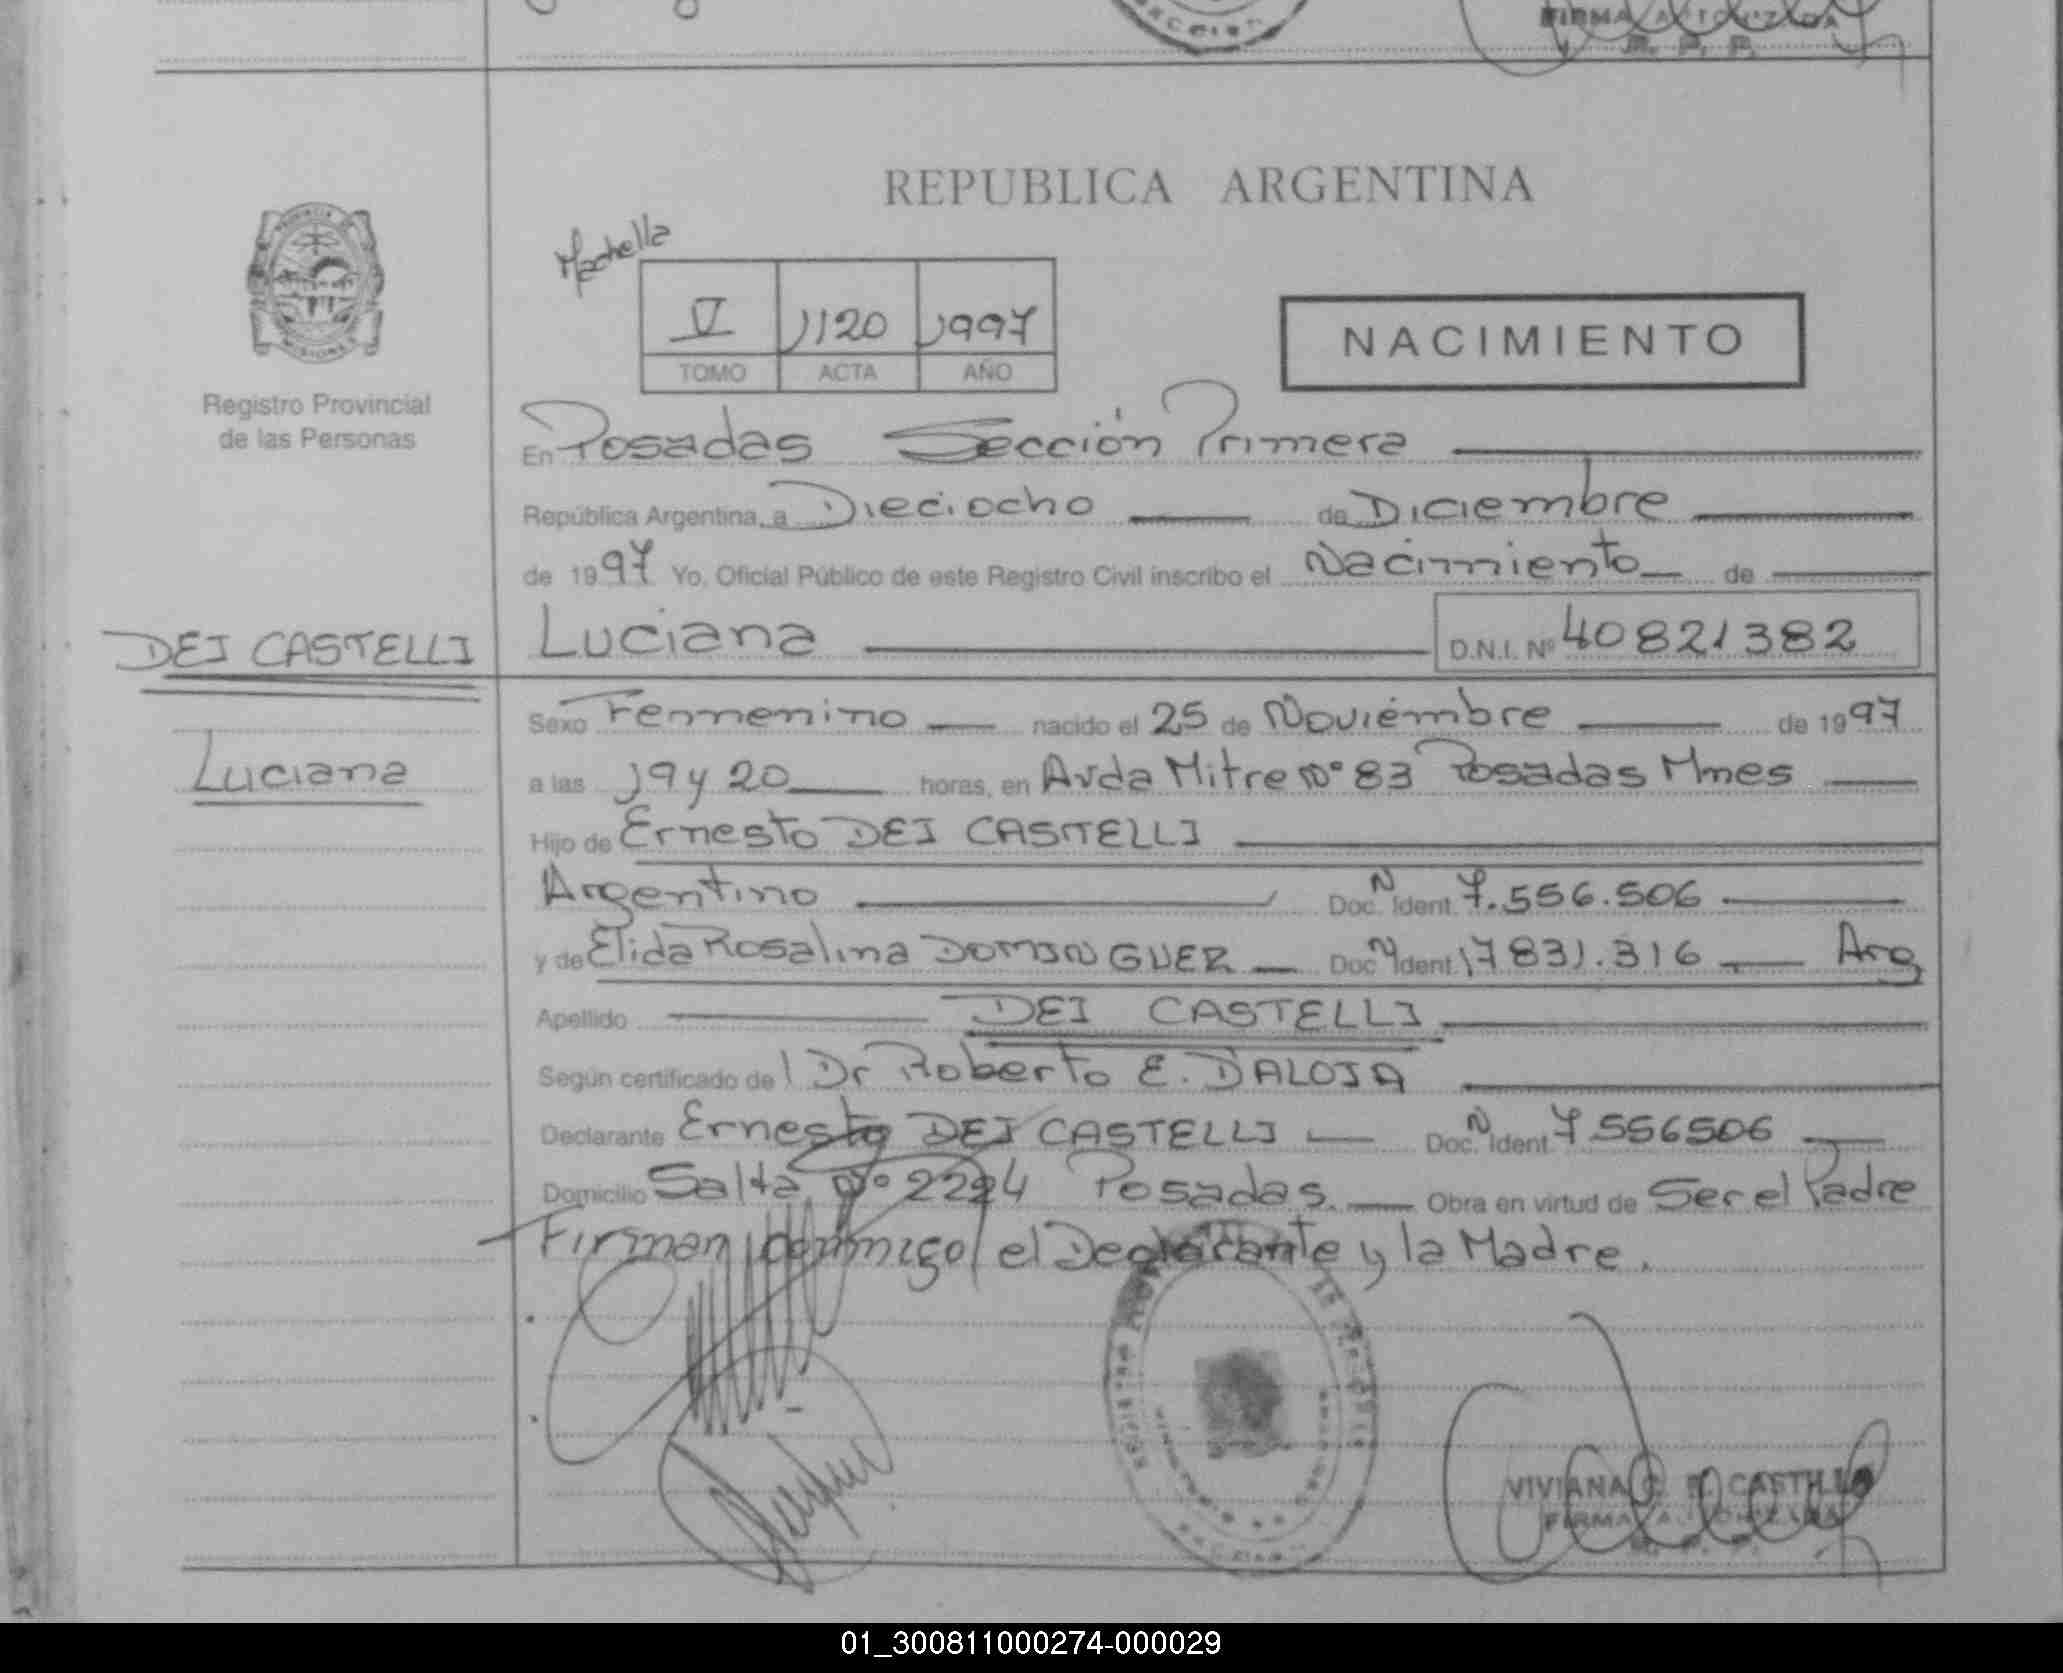 FIRMA AUTORIZADA
R. P. P.
REPUBLICA ARGENTINA
PROVINCIA DE
MISIONES
Registro Provincial
de las Personas
Machella
V 1120 1997
TOMO ACTA AÑO
NACIMIENTO
En Posadas Sección Primera
República Argentina, a Dieciocho de Diciembre
de 1997 Yo, Oficial Público de este Registro Civil inscribo el Nacimiento de
DEI CASTELLI
Luciana
Luciana D.N.I. Nº 40821382
Sexo Femenino nacido el 25 de Noviembre de 1997
a las 19 y 20 horas, en Avda Mitre Nº 83 Posadas Mnes
Hijo de Ernesto DEI CASTELLI
Argentino Doc. N Ident. 7.556.506
y de Elida Rosalina DOMINGUEZ Doc. N Ident. 17831.316 Arg
Apellido DEI CASTELLI
Según certificado de l Dr Roberto E. D'ALOIA
Declarante Ernesto DEI CASTELLI Doc. N Ident. 7556506
Domicilio Salta Nº 2224 Posadas. Obra en virtud de Ser el Padre
Firman conmigo el Declarante y la Madre.
VIVIANA CASTILLO
FIRMA AUTORIZADA
01_300811000274-000029